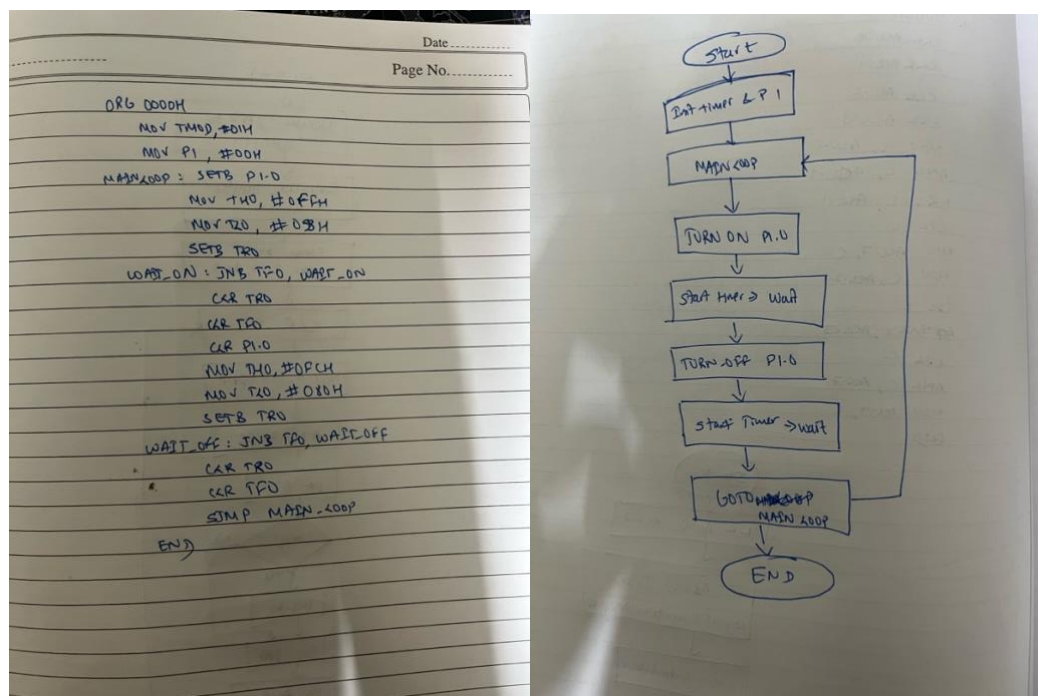 Date
Page No.
ORG 0000H
MOV TMOD, #01H
MOV P1, #00H
MAINLOOP: SETB P1.0
MOV TH0, #0FFH
MOV TL0, #
SETB TR0
WAIT_ON: JNB TF0, WAIT_ON
CLR TR0
CLR TF0
CLR P1.0
MOV TH0, #0FCH
MOV TL0, #080H
SETB TR0
WAIT_OFF: JNB TF0, WAIT_OFF
CLR TR0
CLR TF0
SJMP MAIN_LOOP
END
Start
Init timer & P1
MAINLOOP
TURN ON P1.0
Start timer → Wait
TURN OFF P1.0
Start Timer → wait
GOTO
MAIN LOOP
END